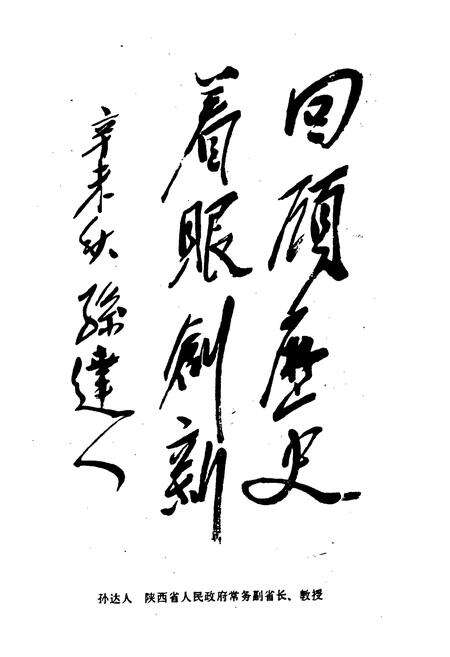 回顾歷史
着眼創新
辛未秋 孫達人
孙达人 陕西省人民政府常务副省长、教授